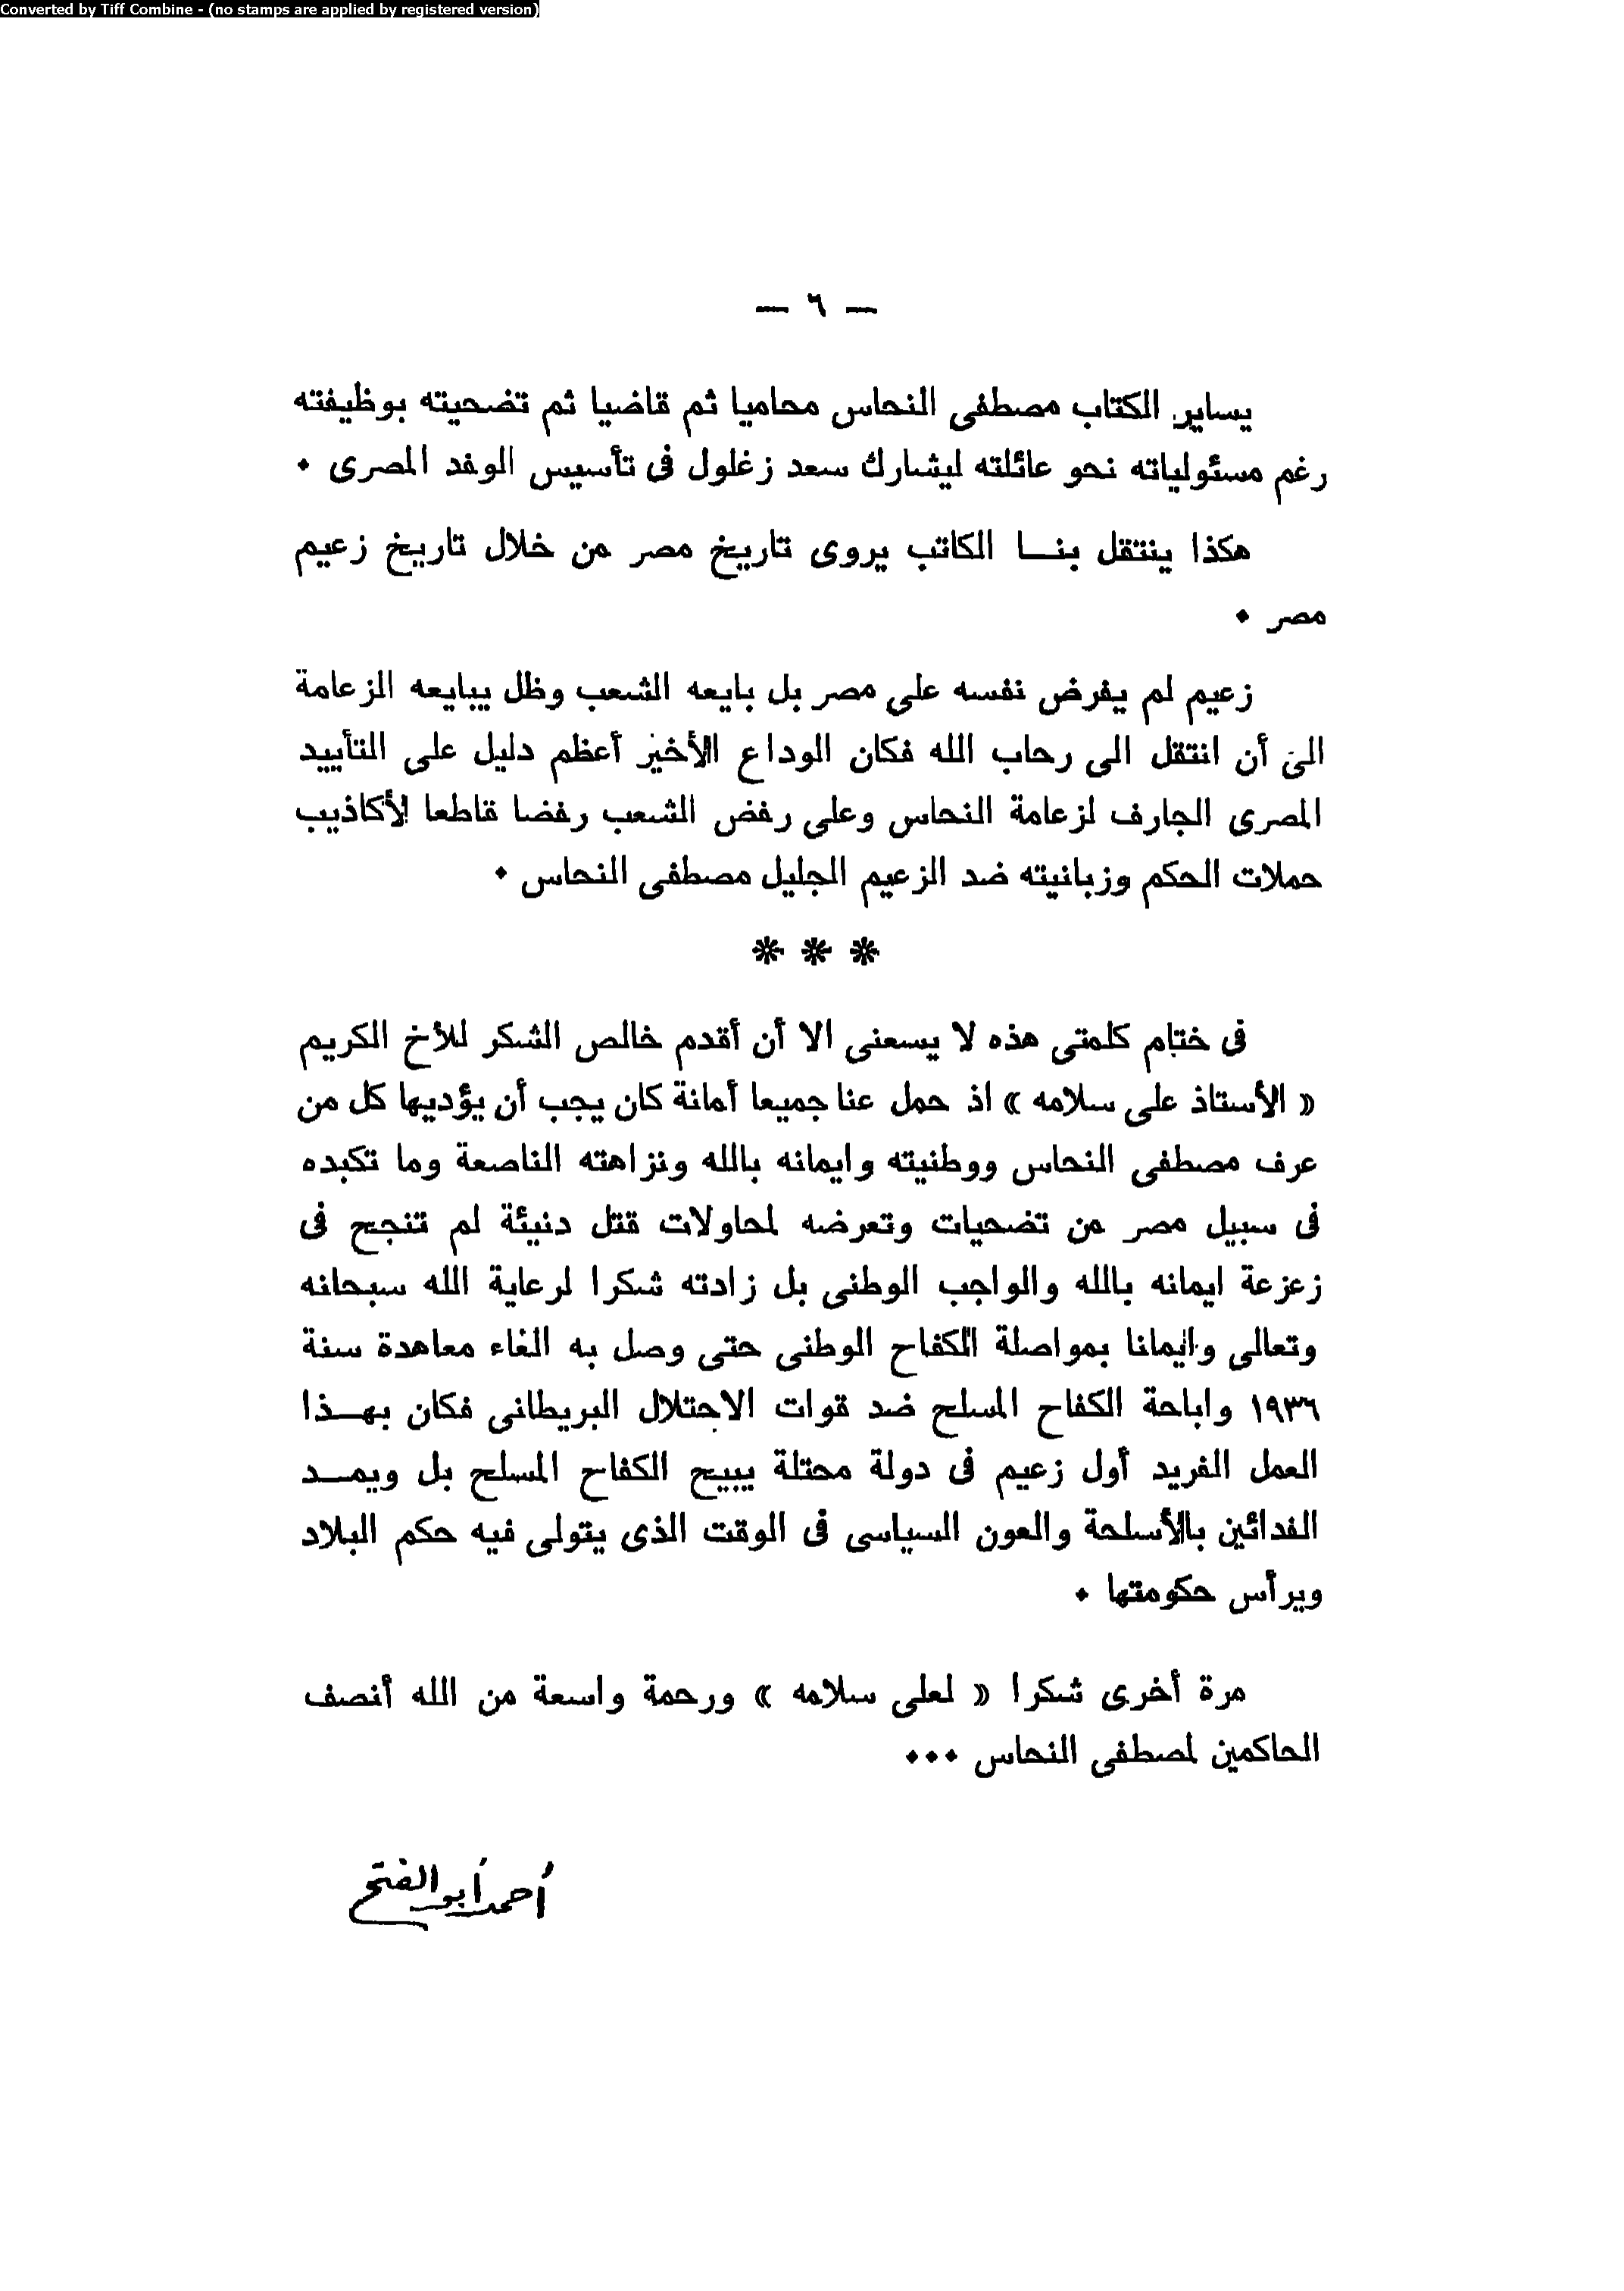 Converted by Tiff Combine - (no stamps are applied by registered version)
— ٦ —
يساير الكتاب مصطفى النحاس محاميا ثم قاضيا ثم تضحيته بوظيفته
رغم مسئولياته نحو عائلته ليشارك سعد زغلول فى تأسيس الوفد المصرى ٠
هكذا ينتقل بنــا الكاتب يروى تاريخ مصر من خلال تاريخ زعيم
مصر ٠
زعيم لم يفرض نفسه على مصر بل بايعه الشعب وظل يبايعه الزعامة
الى أن انتقل الى رحاب الله فكان الوداع الأخير أعظم دليل على التأييد
المصرى الجارف لزعامة النحاس وعلى رفض الشعب رفضا قاطعا لأكاذيب
حملات الحكم وزبانيته ضد الزعيم الجليل مصطفى النحاس ٠
* * *
فى ختام كلمتى هذه لا يسعنى الا أن أقدم خالص الشكر للأخ الكريم
« الأستاذ على سلامه » اذ حمل عنا جميعا أمانة كان يجب أن يؤديها كل من
عرف مصطفى النحاس ووطنيته وايمانه بالله ونزاهته الناصعة وما تكبده
فى سبيل مصر من تضحيات وتعرضه لمحاولات قتل دنيئة لم تنجح فى
زعزعة ايمانه بالله والواجب الوطنى بل زادته شكرا لرعاية الله سبحانه
وتعالى وايمانا بمواصلة الكفاح الوطنى حتى وصل به الغاء معاهدة سنة
١٩٣٦ واباحة الكفاح المسلح ضد قوات الاحتلال البريطانى فكان بهــذا
العمل الفريد أول زعيم فى دولة محتلة يبيح الكفاح المسلح بل ويمــد
الفدائين بالأسلحة والعون السياسى فى الوقت الذى يتولى فيه حكم البلاد
ويرأس حكومتها ٠
مرة أخرى شكرا « لعلى سلامه » ورحمة واسعة من الله أنصف
الحاكمين لمصطفى النحاس ٠٠٠
أحمد أبو الفتح